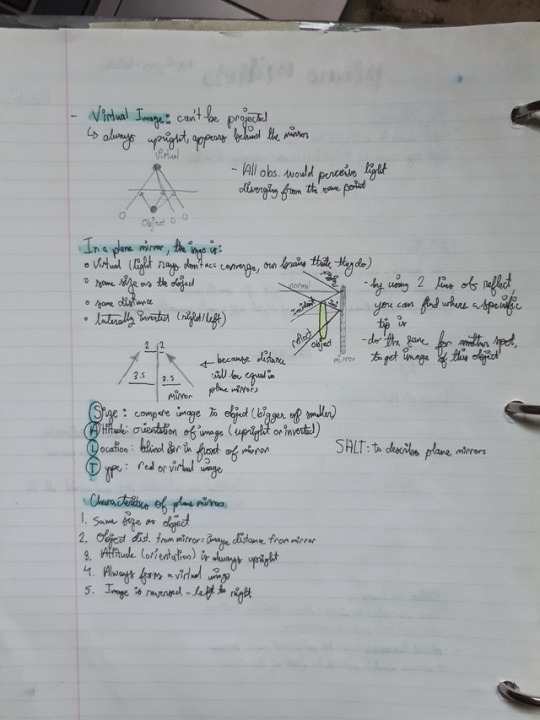 - Virtual Image: can't be projected
↳ always upright, appears behind the mirror
Virtual
Object
O O O
- All obs. would perceive light
diverging from the same point
In a plane mirror, the image is:
o virtual (light rays don't acc converge, our brains think they do)
o same size as the object
o same distance
o laterally inverted (right/left)
normal
incident
reflect
object
mirror
- by using 2 lines of reflect,
you can find where a specific
tip is
- do the same for another spot,
to get image of this object
2 2
3.5 3.5
mirror
← because distance
will be equal in
plane mirrors
Size: compare image to object (bigger of smaller)
Attitude: orientation of image (upright or inverted)
Location: behind or in front of mirror
Type: real or virtual image
SALT: to describe plane mirrors
Characteristics of plane mirrors
1. Same size as object
2. Object dist. from mirror = image distance from mirror
3. Attitude (orientation) is always upright
4. Always forms a virtual image
5. Image is reversed - left to right